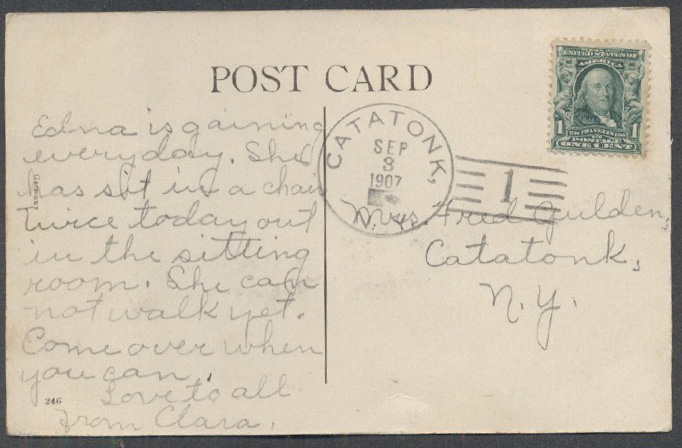 POST CARD
Edna is gaining
everyday. She
has sat in a chair
twice today out
in the sitting
room. She can
not walk yet.
Come over when
you can.
Love to all
from Clara.
246
Germany
CATATONK,
SEP
3
1907
N.Y.
1
UNITED STATES OF
AMERICA
1 1
POSTAGE
ONE CENT
Mrs. Fred Gulden,
Catatonk,
N.Y.